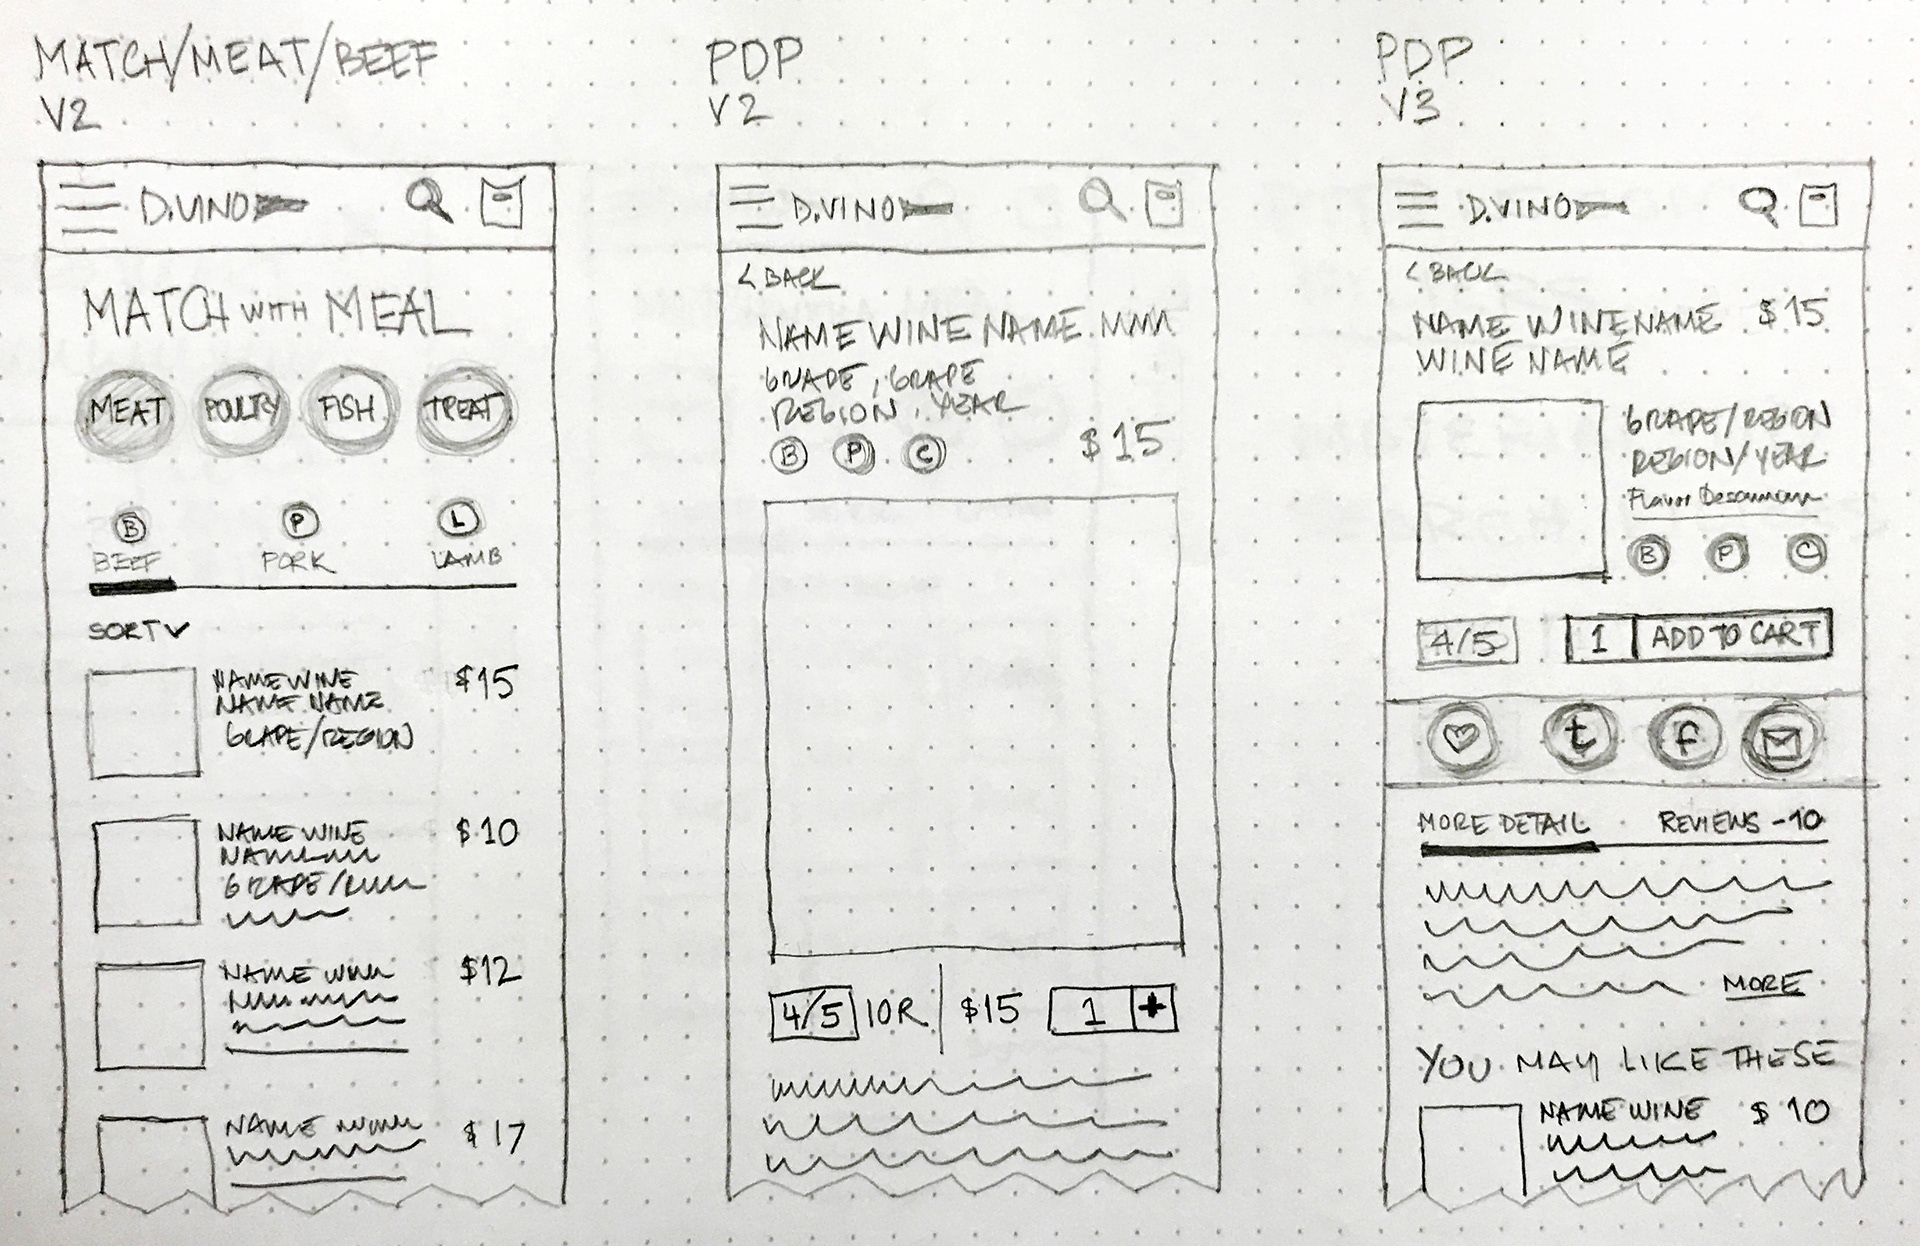 MATCH/MEAT/BEEF
V2
D.VINO
MATCH WITH MEAL
MEAT POULTRY FISH TREAT
B P L
BEEF PORK LAMB
SORT
NAME WINE $15
NAME NAME
GRAPE/REGION
NAME WINE $10
GRAPE/
NAME $12
NAME $17
PDP
V2
D.VINO
< BACK
NAME WINE NAME
GRAPE, GRAPE
REGION, YEAR
B P C $15
4/5 10R $15 1 +
PDP
V3
D.VINO
< BACK
NAME WINE NAME $15
WINE NAME
GRAPE/REGION
REGION/YEAR
Flavor
B P C
4/5 1 ADD TO CART
t f
MORE DETAIL REVIEWS - 10
MORE
YOU MAY LIKE THESE
NAME WINE $10